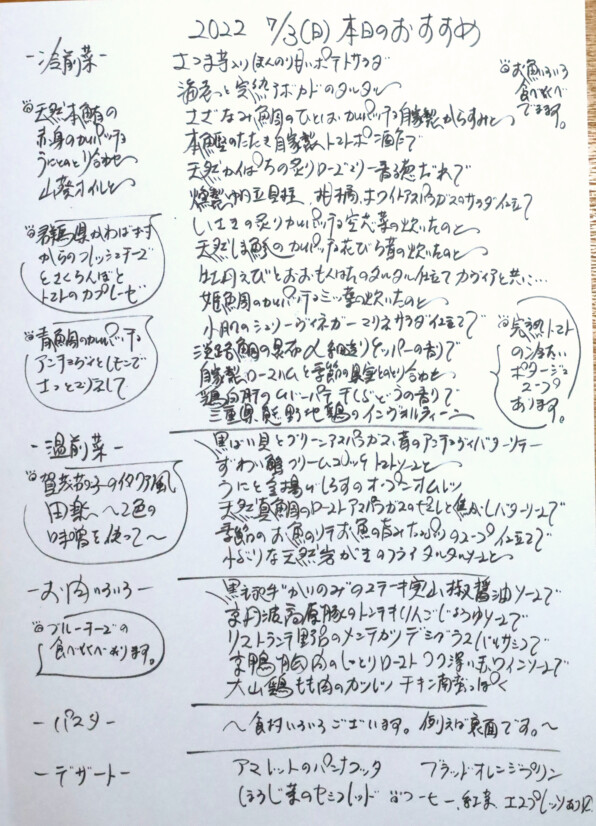 2022 7/3(日)本日のおすすめ
-冷前菜-
さつま芋入りほんのり甘いポテトサラダ
海老っと完熟アボカドのタルタル
さざなみ鯛のひとはカルパッチョ自家製からすみと
本鰹のたたき自家製トマトポン酢で
天然かんぱちの炙りローズマリー香る徳だれで
燻製帆立貝柱、柑橘、ホワイトアスパラガスのサラダ仕立て
いさきの炙りカルパッチョ空芯菜の炊いたのと
天然しま鯵のカルパッチョ花びら茸の炊いたのと
牡丹えびとおおもんはたのタルタル仕立てカヴィアと共に…
姫鯛のカルパッチョ三ッ葉の炊いたのと
小肌のシェリーヴィネガーマリネサラダ仕立てで
淡路鯛の昆布〆細造りケッパーの香りで
自家製ロースハムと季節の果実とのとり合わせ
鶏白肝のムース パテ 干しぶどうの香りで
三重県熊野地鶏のインヴォルティーニ
お魚いろいろ
食べくらべ
できます。
天然本鮪の
赤身のカルパッチョ
うにとのとり合わせ
山葵オイルと
群馬県かわば村
からのフレッシュチーズ
とさくらんぼと
トマトのカプレーゼ
青魚のカルパッチョ
アンチョヴィとレモンで
さっとマリネして
完熟トマト
の冷たい
ポタージュ
スープ
あります。
-温前菜-
黒ばい貝とグリーンアスパラガス、茸のアンチョヴィバターソテー
ずわい蟹クリームコロッケトマトソースと
うにと釜揚げしらすのオープンオムレツ
天然真鯛のローストアスパラガスのせしと焦がしバターソースで
季節のお魚のソテお魚の旨みたっぷりのスープ仕立てで
小ぶりな天然岩がきのフライタルタルソースと
賀茂茄子のイタリア風
田楽 〜2色の
味噌を使って〜
-お肉いろいろ-
黒毛和牛"かいのみ"のステーキ実山椒醤油ソースで
京丹波高原豚のトンテキりんごしょうゆソースで
リストランテ野呂のメンチカツデミグラスバルサミコで
京鴨胸肉のしっとりローストコク深い赤ワインソースで
大山鶏もも肉のカツレツ チキン南蛮っぽく
ブルーチーズの
食べくらべあります。
-パスタ-
〜食材いろいろございます。例えば裏面です。〜
-デザート-
アマレットのパンナコッタ ブラッドオレンジプリン
ほうじ茶のセミフレッド コーヒー、紅茶、エスプレッソあります